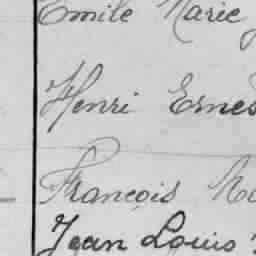 Emile Marie
Henri Ernes
François
Jean Louis